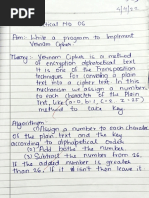 Practical No 06
Aim: Write a program to Implement
Vernam Cipher.
Theory: Vernam Cipher is a method
of encryption alphabetical text.
It is one of the Transposition
techniques for converting a plain
text into a cipher text. In this
mechanism we assign a number
to each character of the Plain
text, like (a=0, b=1, c=2, z=25)
method to take key
Algorithm:
Assign a number to each character
of the plain text and the key
according to alphabetical order.
(2) Add bothe the number.
(3) Subtract the number from 26
if the added number is greater
than 26, if it isn't then leave it